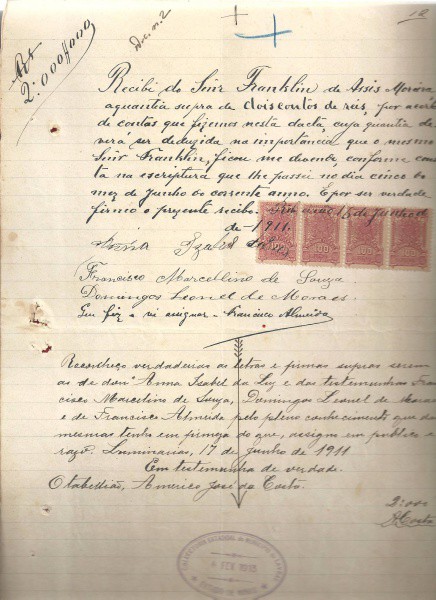 Doc. n. 2
12
Rs
2:000#000
Recibi do Snr Franklin de Assis Moreira
aquantia supra de dois contos de reis, por acerto
de contas que fizemos nesta dacta, cuja quantia de
verá ser deduzida na importancia que o mesmo
Snr Franklin, ficou me devendo, conforme cons
ta na escriptura que lhe passei no dia cinco do
mez de Junho do corrente anno. E por ser verdade
firmo o presente recibo. 15 de Junho de
de 1911.
Anna Izabel da Luz
Francisco Marcolino de Souza
Domingos Leonel de Moraes
Que fiz e vi assignar - Francisco Almeida
Reconheço verdadeiras as letras e firmas supras serem
as de don Anna Isabel da Luz e das testimunhas Fran
cisco Marcolino de Souza, Domingos Leonel de Moraes
e de Francisco Almeida pelo pleno conhecimento que das
mesmas tenho em firmeza do que, assigno em publico e
razo. Luminarias, 17 de Junho de 1911
Em testimunho de verdade.
O tabellião, Americo José da Costa.
2:000
Costa
200
200
200
200
FEV 1935